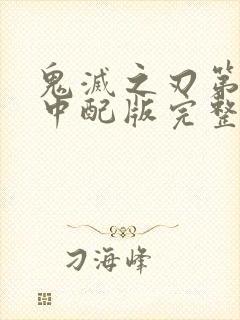 鬼滅之刃第
中配版完整
刁海峰